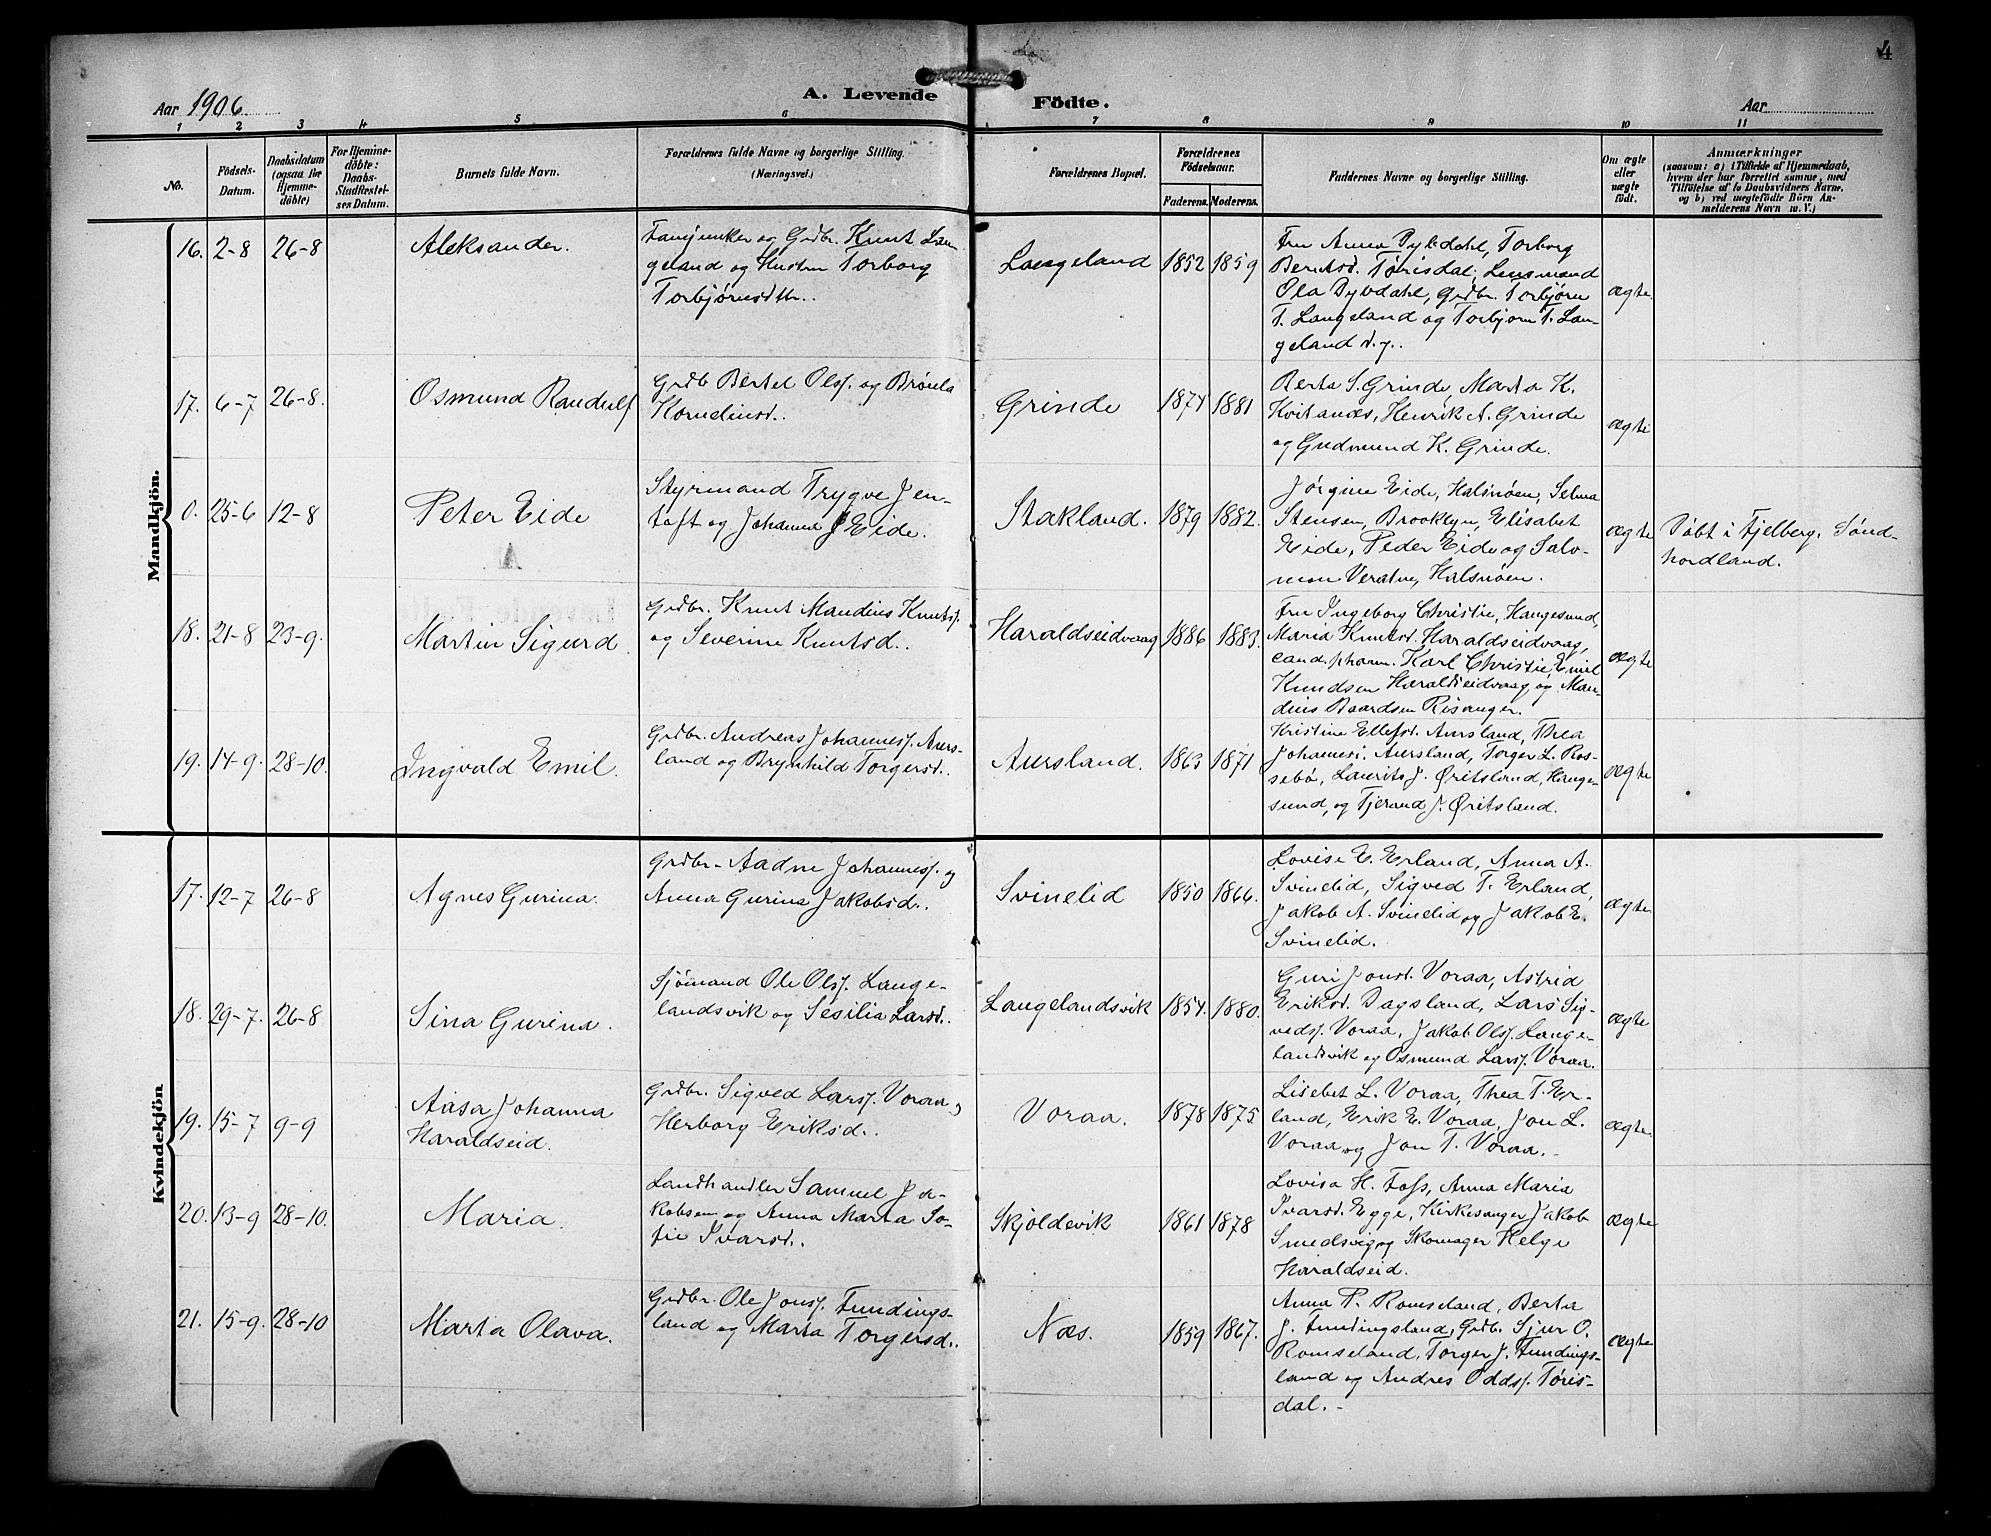 4
Aar 1906
A. Levende Födte.
Aar
1 2 3 4 5 6 7 8 9 10 11
No.
Födsels-Datum.
Daabsdatum (ogsaa for Hjemme-döbte)
For Hjemme-döbte: Daabs-Stadfæstel-ses Datum.
Barnets fulde Navn.
Forældrenes fulde Navne og borgerlige Stilling. (Næringsvei.)
Forældrenes Bopæl.
Forældrenes Födselsaar.
Faderens. Moderens.
Faddernes Navne og borgerlige Stilling.
Om ægte eller uægte födt.
Anmærkninger
(saasom: a) i Tilfælde af Hjemmedaab,
hvem der har forrettet samme, med
Tilföielse af to Daabsvidners Navne,
og b) ved uægtefödte Börn An-
melderens Navn m. V.)
Mandkjön.
16. 2-8 26-8
Aleksander.
Fanejunker og Grdbr. Knut Lan-
geland og Hustru Torborg
Torbjørnsdtr..
Langeland 1852 1859
Fru Anna Dybdahl, Torborg
Berntsd. Tørisdal, Lensmand
Ola Dybdahl, Grdbr. Torbjørn
T. Langeland og Torbjørn T. Lan-
geland d. y..
ægte
17. 6-7 26-8.
Osmund Randulf
Grdb Bertel Olsf. og Brønla
Kornelinsd..
Grinde 1874 1881
Berta S. Grinde, Marta K.
Kvitanæs, Henrik A. Grinde
og Gudmund K. Grinde.
ægte
0. 25-6 12-8
Peter Eide
Styrmand Trygve Jen-
toft og Johanna J Eide.
Stakland. 1879 1882.
Jørgine Eide, Halsnøen, Selma
Stensen, Brooklyn, Elisabet
Eide, Peder Eide og Salo-
mon Veratne, Halsnøen.
ægte
Døbt i Fjelberg, Sønd-
hordland.
18. 21-8 23-9.
Martin Sigurd
Grdbr. Knut Mandius Knutsf.
og Severine Knutsd..
Haraldseidvaag 1886 1883.
Fru Ingeborg Christie, Haugesund,
Maria Knutsd. Haraldseidvaag,
cand. pharm. Karl Christie, Emil
Knudsen Haraldseidvaag og Man-
dius Baardsen Risanger.
ægte
19. 14-9. 28-10.
Ingvald Emil.
Grdbr. Andreas Johannesf. Aurs-
land og Brynhild Torgersd..
Aursland. 1863 1871
Kristine Ellefsd. Aursland, Thea
Johannesd. Aursland, Torger L. Ros-
sebø, Laurits J. Øritsland, Hauge-
sund, og Tjerand J. Øritsland.
ægte
Kvindekjön
17. 12-7 26-8
Agnes Gurina.
Grdbr. Aadne Johannesf. og
Anna Gurina Jakobsd..
Svinelid 1850 1866.
Lovise E. Erland, Anna A.
Svinelid, Sigved T. Erland,
Jakob A. Svinelid og Jakob E.
Svinelid.
ægte
18. 29-7. 26-8
Sina Gurina.
Sjømand Ole Olsf. Lange-
landsvik og Sesilia Larsd..
Langelandsvik 1854. 1880.
Guri Jonsd. Voraa, Astrid
Eriksd. Dagsland, Lars Sig-
vedsf. Voraa, Jakob Olsf. Lange-
landsvik og Osmund Larsf. Voraa.
ægte
19. 15-7 9-9
Aasa Johanna
Haraldseid.
Grdbr. Sigved Larsf. Voraa og
Herborg Eriksd..
Voraa. 1878 1875.
Lisebet L. Voraa, Thea T. Er-
land, Erik E. Voraa, Jon L.
Voraa og Jon T. Voraa.
ægte
20. 13-9 28-10.
Maria.
Landhandler Samuel Ja-
kobsen og Anna Marta So-
fie Ivarsd..
Skjoldevik 1861 1878
Lovisa H. Foss, Anna Maria
Ivarsd. Egge, Kirkesanger Jakob
Smedsvig og Skomager Helge
Haraldseid.
ægte
21. 15-9. 28-10
Marta Olava.
Grdbr. Ole Jonsf. Fundings-
land og Marta Torgersd..
Næs. 1859 1867.
Anna P. Romseland, Berta
J. Fundingsland, Grdb. Sjur O.
Romseland, Torger J. Fundings-
land og Andres Oddsf. Tøris-
dal.
ægte